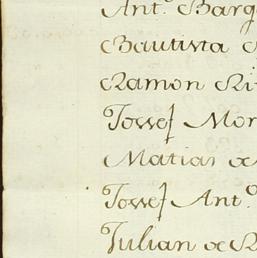 Ant.º Barq
Bautista
Ramon Ri
Jossef Mor
Matias de
Jossef Ant.º
Julian de R